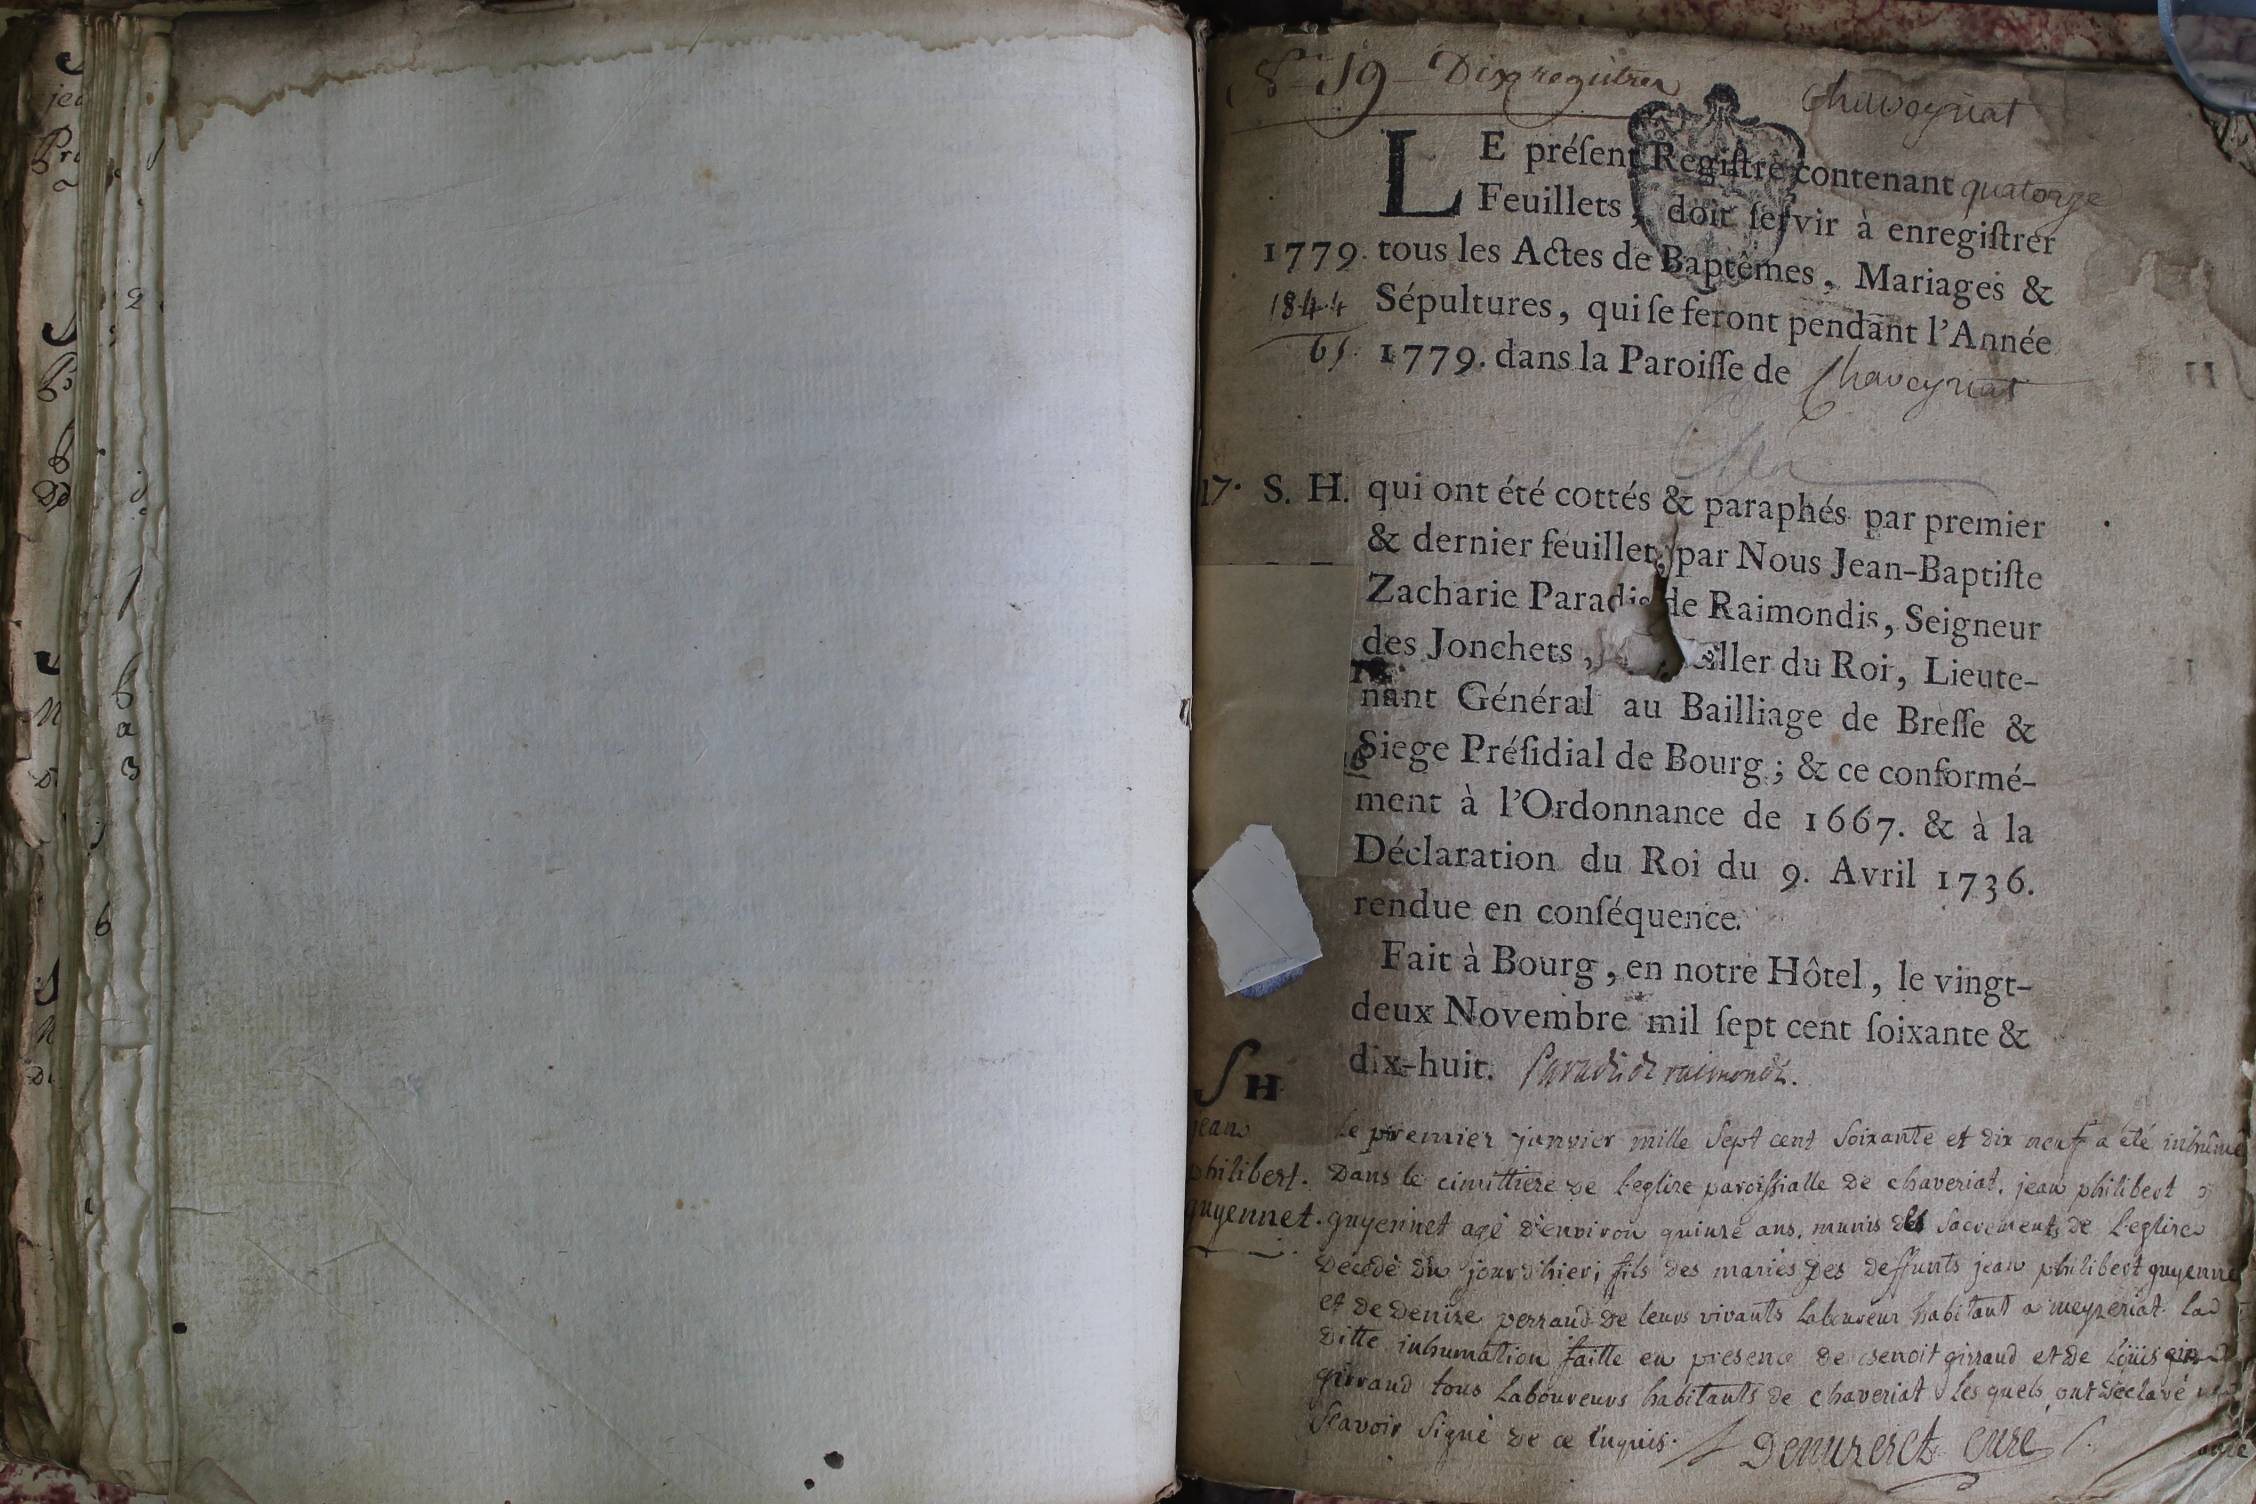 19 Dix registres
Chaveyriat
LE préſent Regiſtre contenant quatorze
Feuillets, doit ſervir à enregiſtrer
1779. tous les Actes de Baptêmes, Mariages &
1844 Sépultures, qui ſe feront pendant l'Année
65. 1779. dans la Paroiſſe de Chaveyriat
17. S. H. qui ont été cottés & paraphés par premier
& dernier feuillet, par Nous Jean-Baptiſte
Zacharie Paradis de Raimondis, Seigneur
des Jonchets, iller du Roi, Lieute-
nant Général au Bailliage de Breſſe &
Siege Préſidial de Bourg; & ce conformé-
ment à l'Ordonnance de 1667. & à la
Déclaration du Roi du 9. Avril 1736.
rendue en conſéquence.
Fait à Bourg, en notre Hôtel, le vingt-
deux Novembre mil ſept cent ſoixante &
dix-huit. Paradis de raimondis.
SH
jean
philibert.
guyennet.
Le premier janvier mille Sept cent Soixante et dix neuf a été inhumé
Dans le cimittiere de l'eglise paroissialle de chaveriat. jean philibert
guyennet agé d'environ quinze ans. munis des Sacrements de l'eglise
Decedé du jour d'hier; fils des mariés des deffunts jean philibert guyennet
et de denise perraud de leurs vivants Laboureur habitant a meyzeriat. lad
ditte inhumation faitte en presence de benoit girraud et de Loüis
girraud tous Laboureurs habitants de chaveriat lesquels ont declaré
Scavoir Signé de ce enquis.
Demuzeret curé